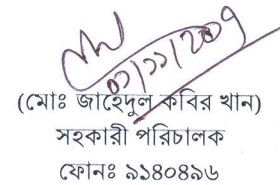 ০১/১১/২০০৭
(মোঃ জাহেদুল কবির খান)
সহকারী পরিচালক
ফোনঃ ৯১৪০৪৯৬